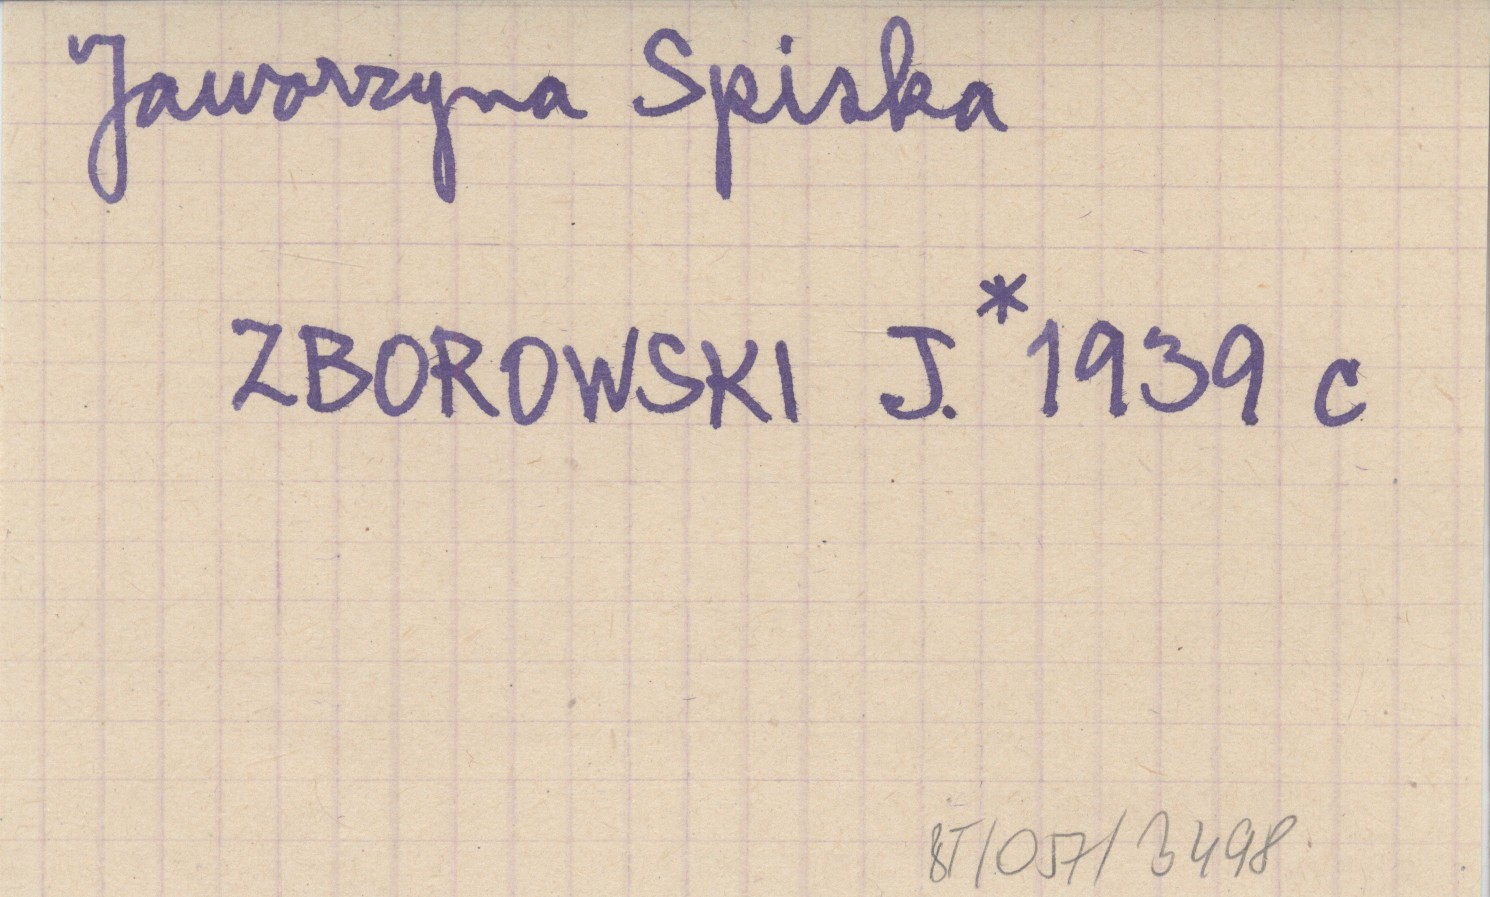 Jaworzyna Spiska
ZBOROWSKI J.* 1939 c
BT/057/3498